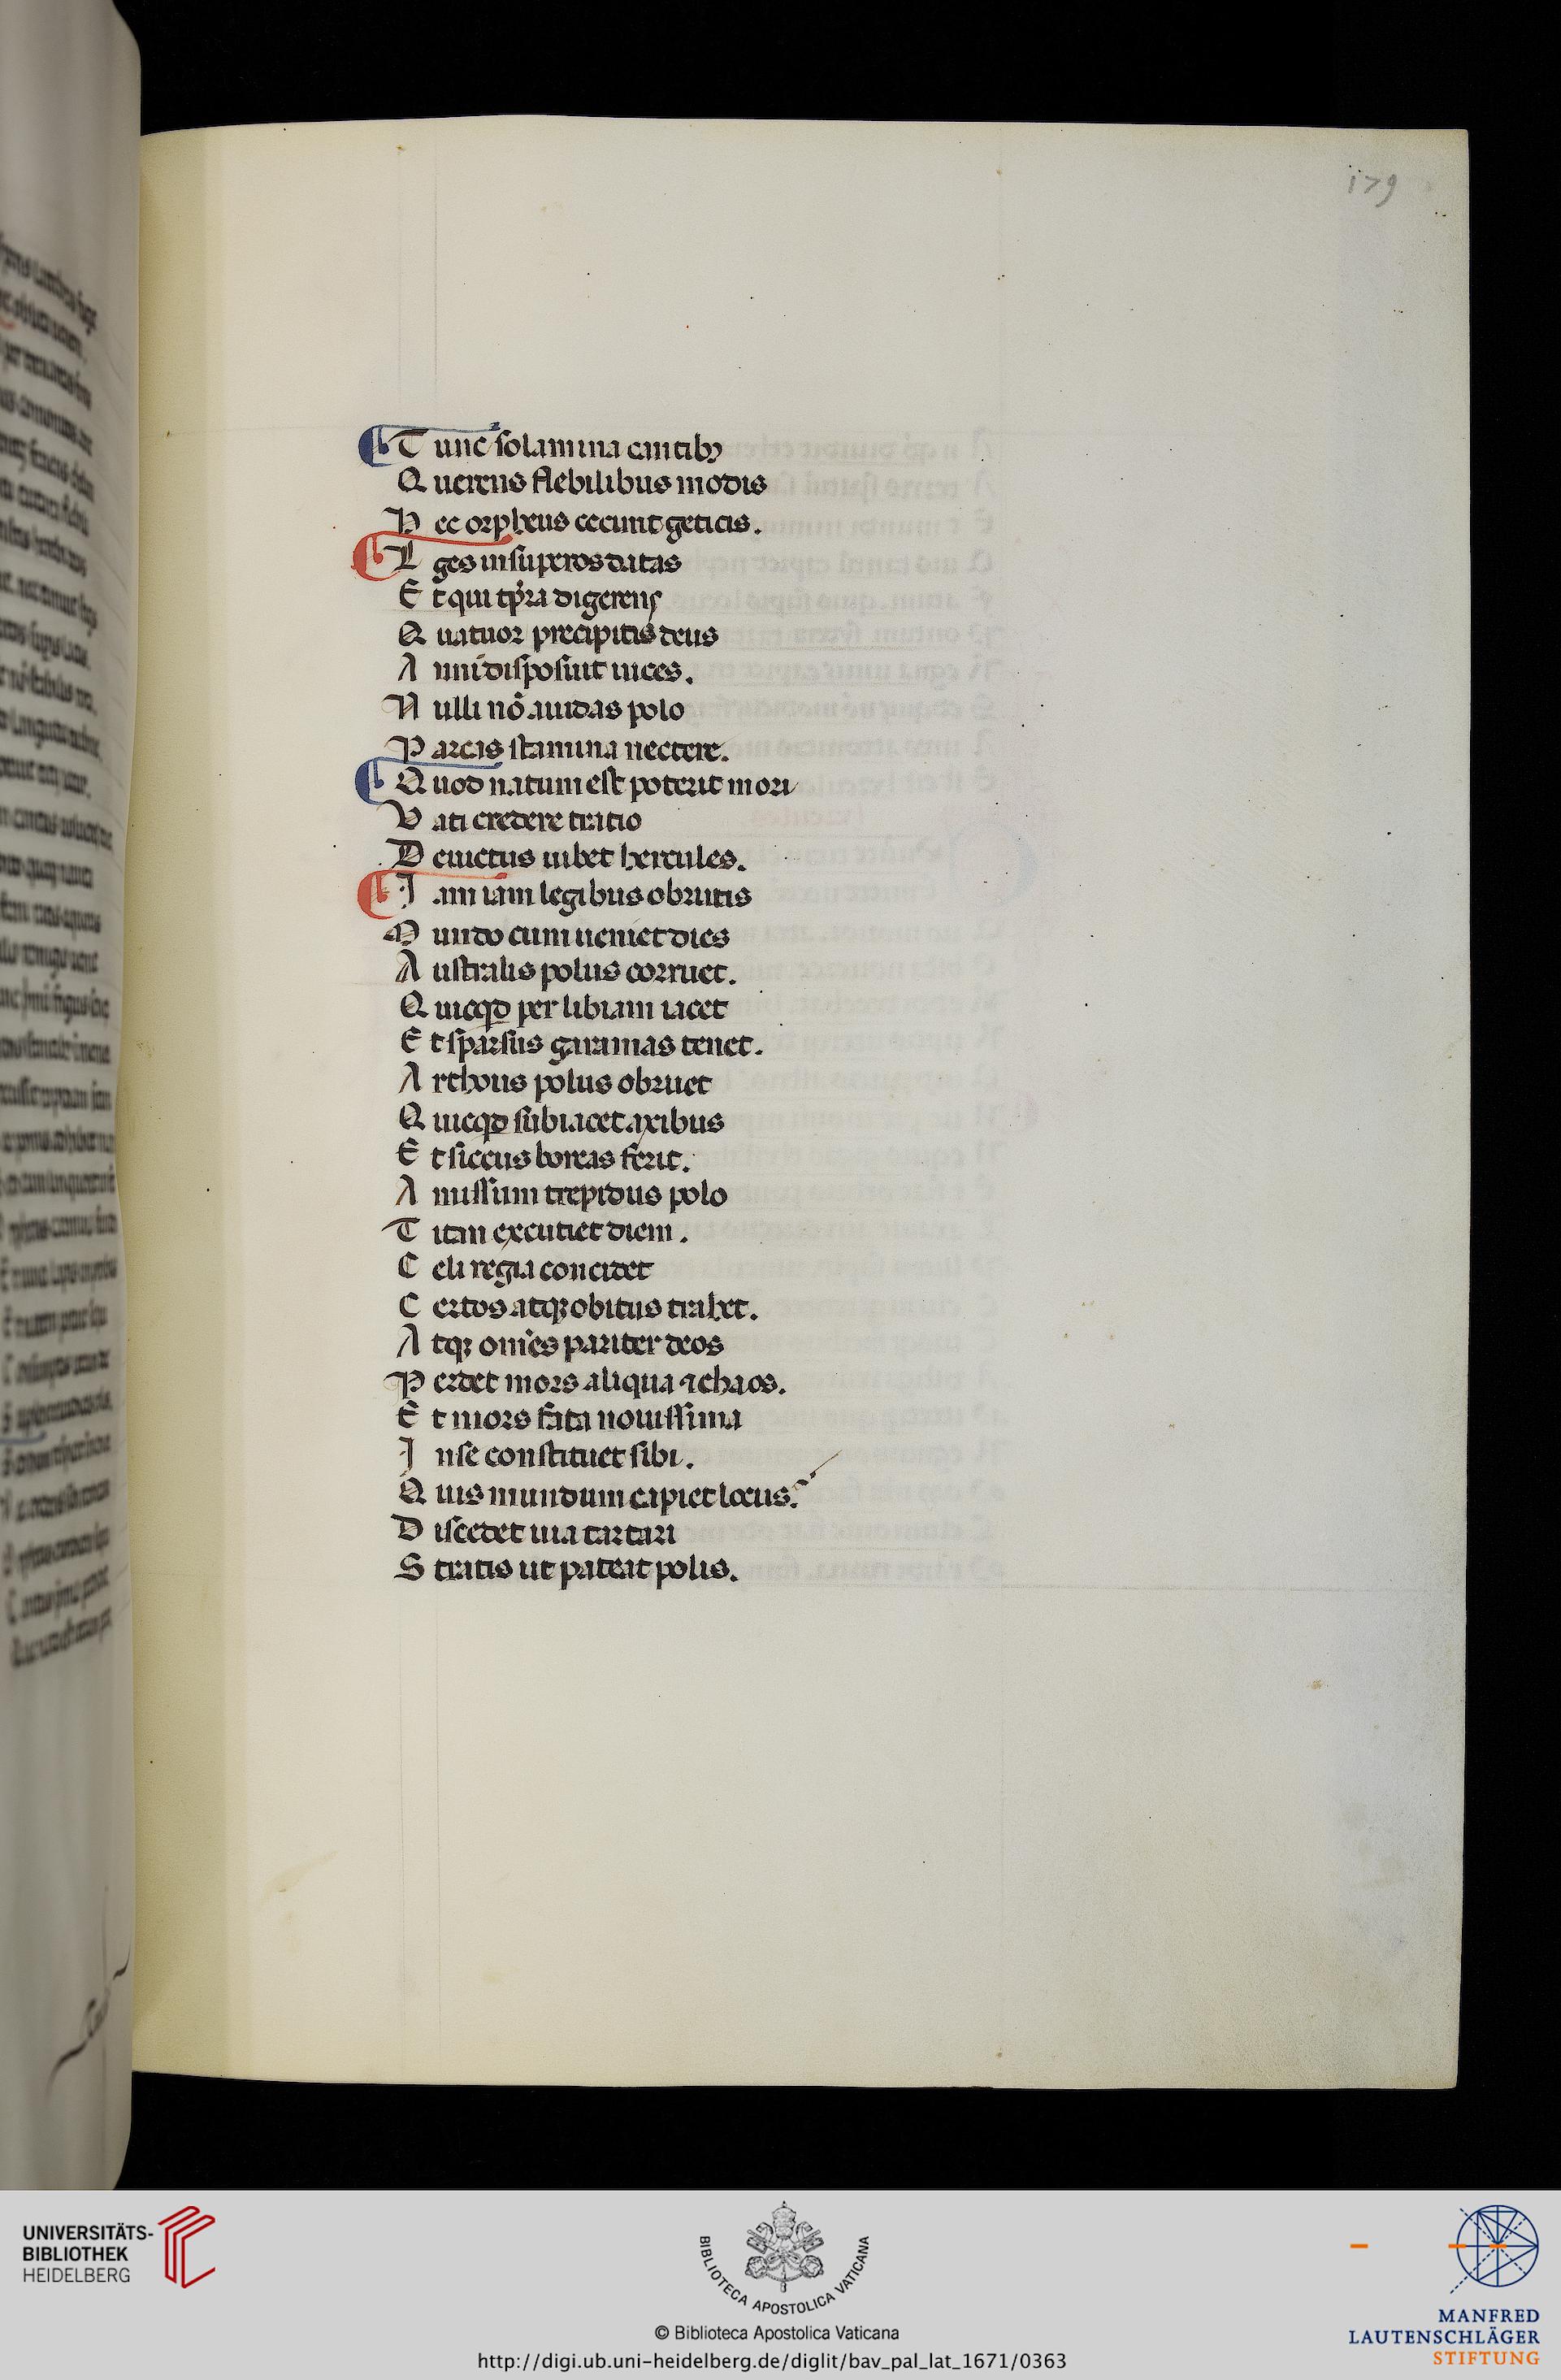 179
Tunc solamina cantibꝫ
Querens flebilibus modis
Hec orpheus cecinit geticis.
Leges in superos datas
Et qui tp̄ra digerens
Quatuor precipitis deus
Anni disposuit uices.
Nulli nō auidas polo
Parcas stamina nectere.
Quod natum est poterit mori
Vati credere tratio
Deuictus iubet hercules.
Iam iam legibus obrutis
Mundo cum ueniet dies
Australis polus corruet.
Quicqd per libiam iacet
Et sparsus garamas tenet.
Arthous polus obruet
Quicqd subiacet axibus
Et siccus boreas ferit.
Amissum trepidus polo
Titan excutiet diem.
Celi regia concidet
Certos atqꝫ obitus trahet.
Atqꝫ om̄es pariter deos
Perdet mors aliqua ⁊ chaos.
Et mors fata nouissima
In se constituet sibi.
Quis mundum capiet locus.
Discedet uia tartari
Stratis ut pateat polis.
UNIVERSITÄTS-
BIBLIOTHEK
HEIDELBERG
BIBLIOTECA APOSTOLICA VATICANA
© Biblioteca Apostolica Vaticana
http://digi.ub.uni-heidelberg.de/diglit/bav_pal_lat_1671/0363
MANFRED
LAUTENSCHLÄGER
STIFTUNG